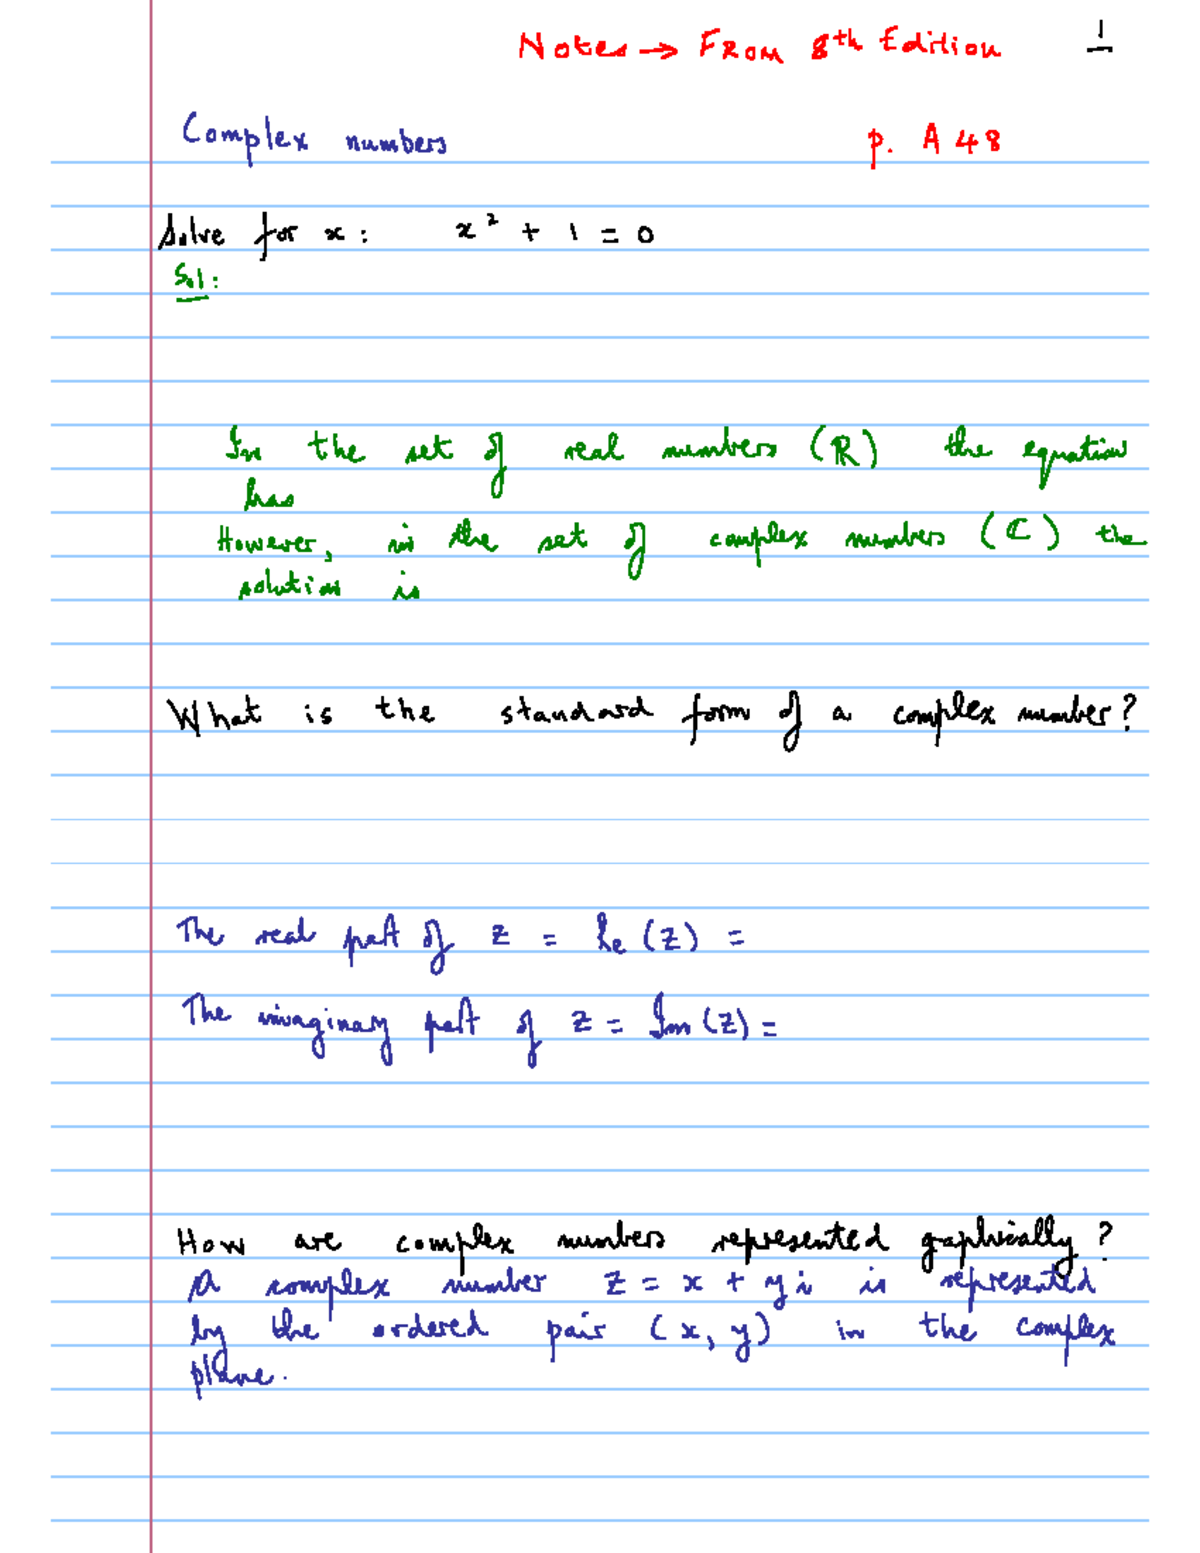 Notes → From 8th Edition 1
Complex numbers p. A 48
Solve for x: x² + 1 = 0
Sol:
In the set of real numbers (ℝ) the equation
has
However, in the set of complex numbers (ℂ) the
solution is
What is the standard form of a complex number?
The real part of z = Re (z) =
The imaginary part of z = Im (z) =
How are complex numbers represented graphically?
A complex number z = x + yi is represented
by the ordered pair (x, y) in the complex
plane.